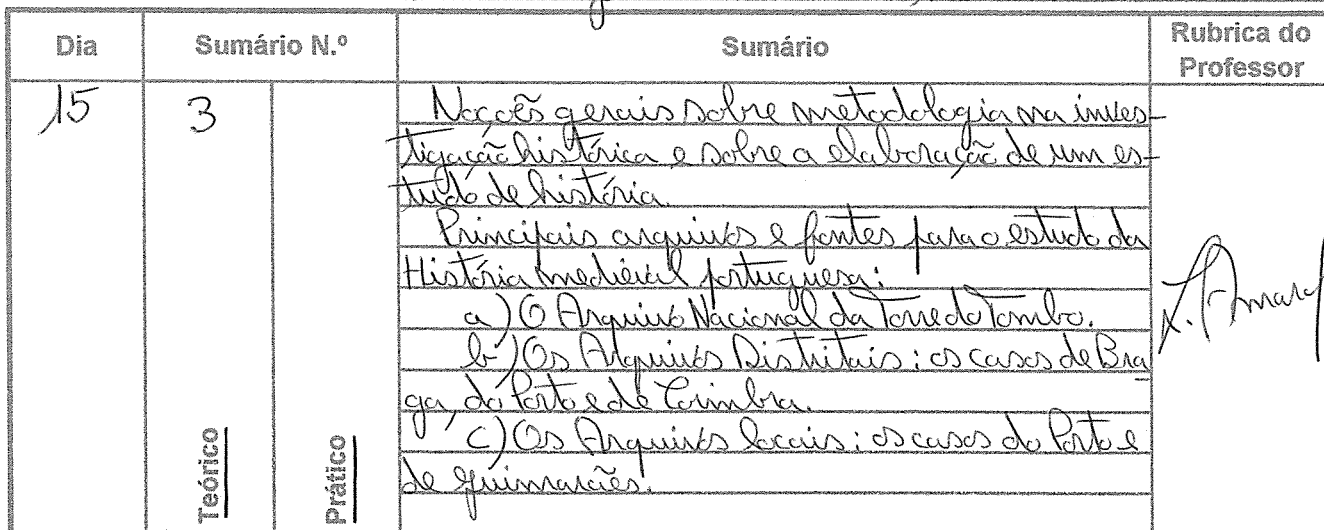 Dia Sumário N.º Sumário Rubrica do Professor
15 3
Noções gerais sobre metodologia na inves-
tigação histórica e sobre a elaboração de um es-
tudo de história.
Principais arquivos e fontes para o estudo da
História medieval portuguesa:
a) O Arquivo Nacional da Torre do Tombo.
b) Os Arquivos Distritais: os casos de Bra
ga, do Porto e de Coimbra.
c) Os Arquivos locais: os casos do Porto e
de Guimarães.
L. Amaral
Teórico
Prático